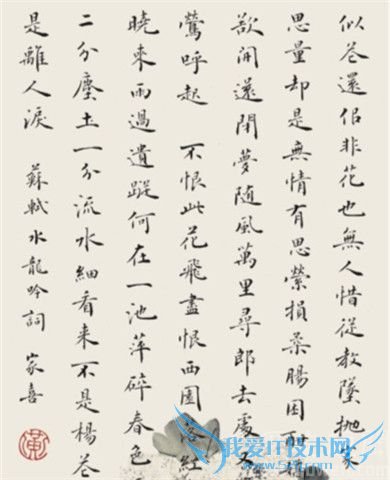 似花還佀非花也無人惜從教墜抛家
思量却是無情有思縈損柔腸困酣
欲開還閉夢隨風萬里尋郎去處又
鶯呼起 不恨此花飛盡恨西園落紅
曉来雨過遺蹤何在一池萍碎春色
二分塵土一分流水細看来不是楊花
是離人淚 蘇軾水龍吟詞 家喜
我爱IT技术网